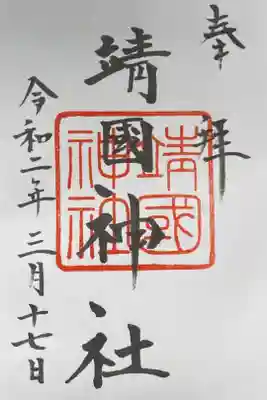 奉拝
靖國神社
靖國神社
令和二年三月十七日